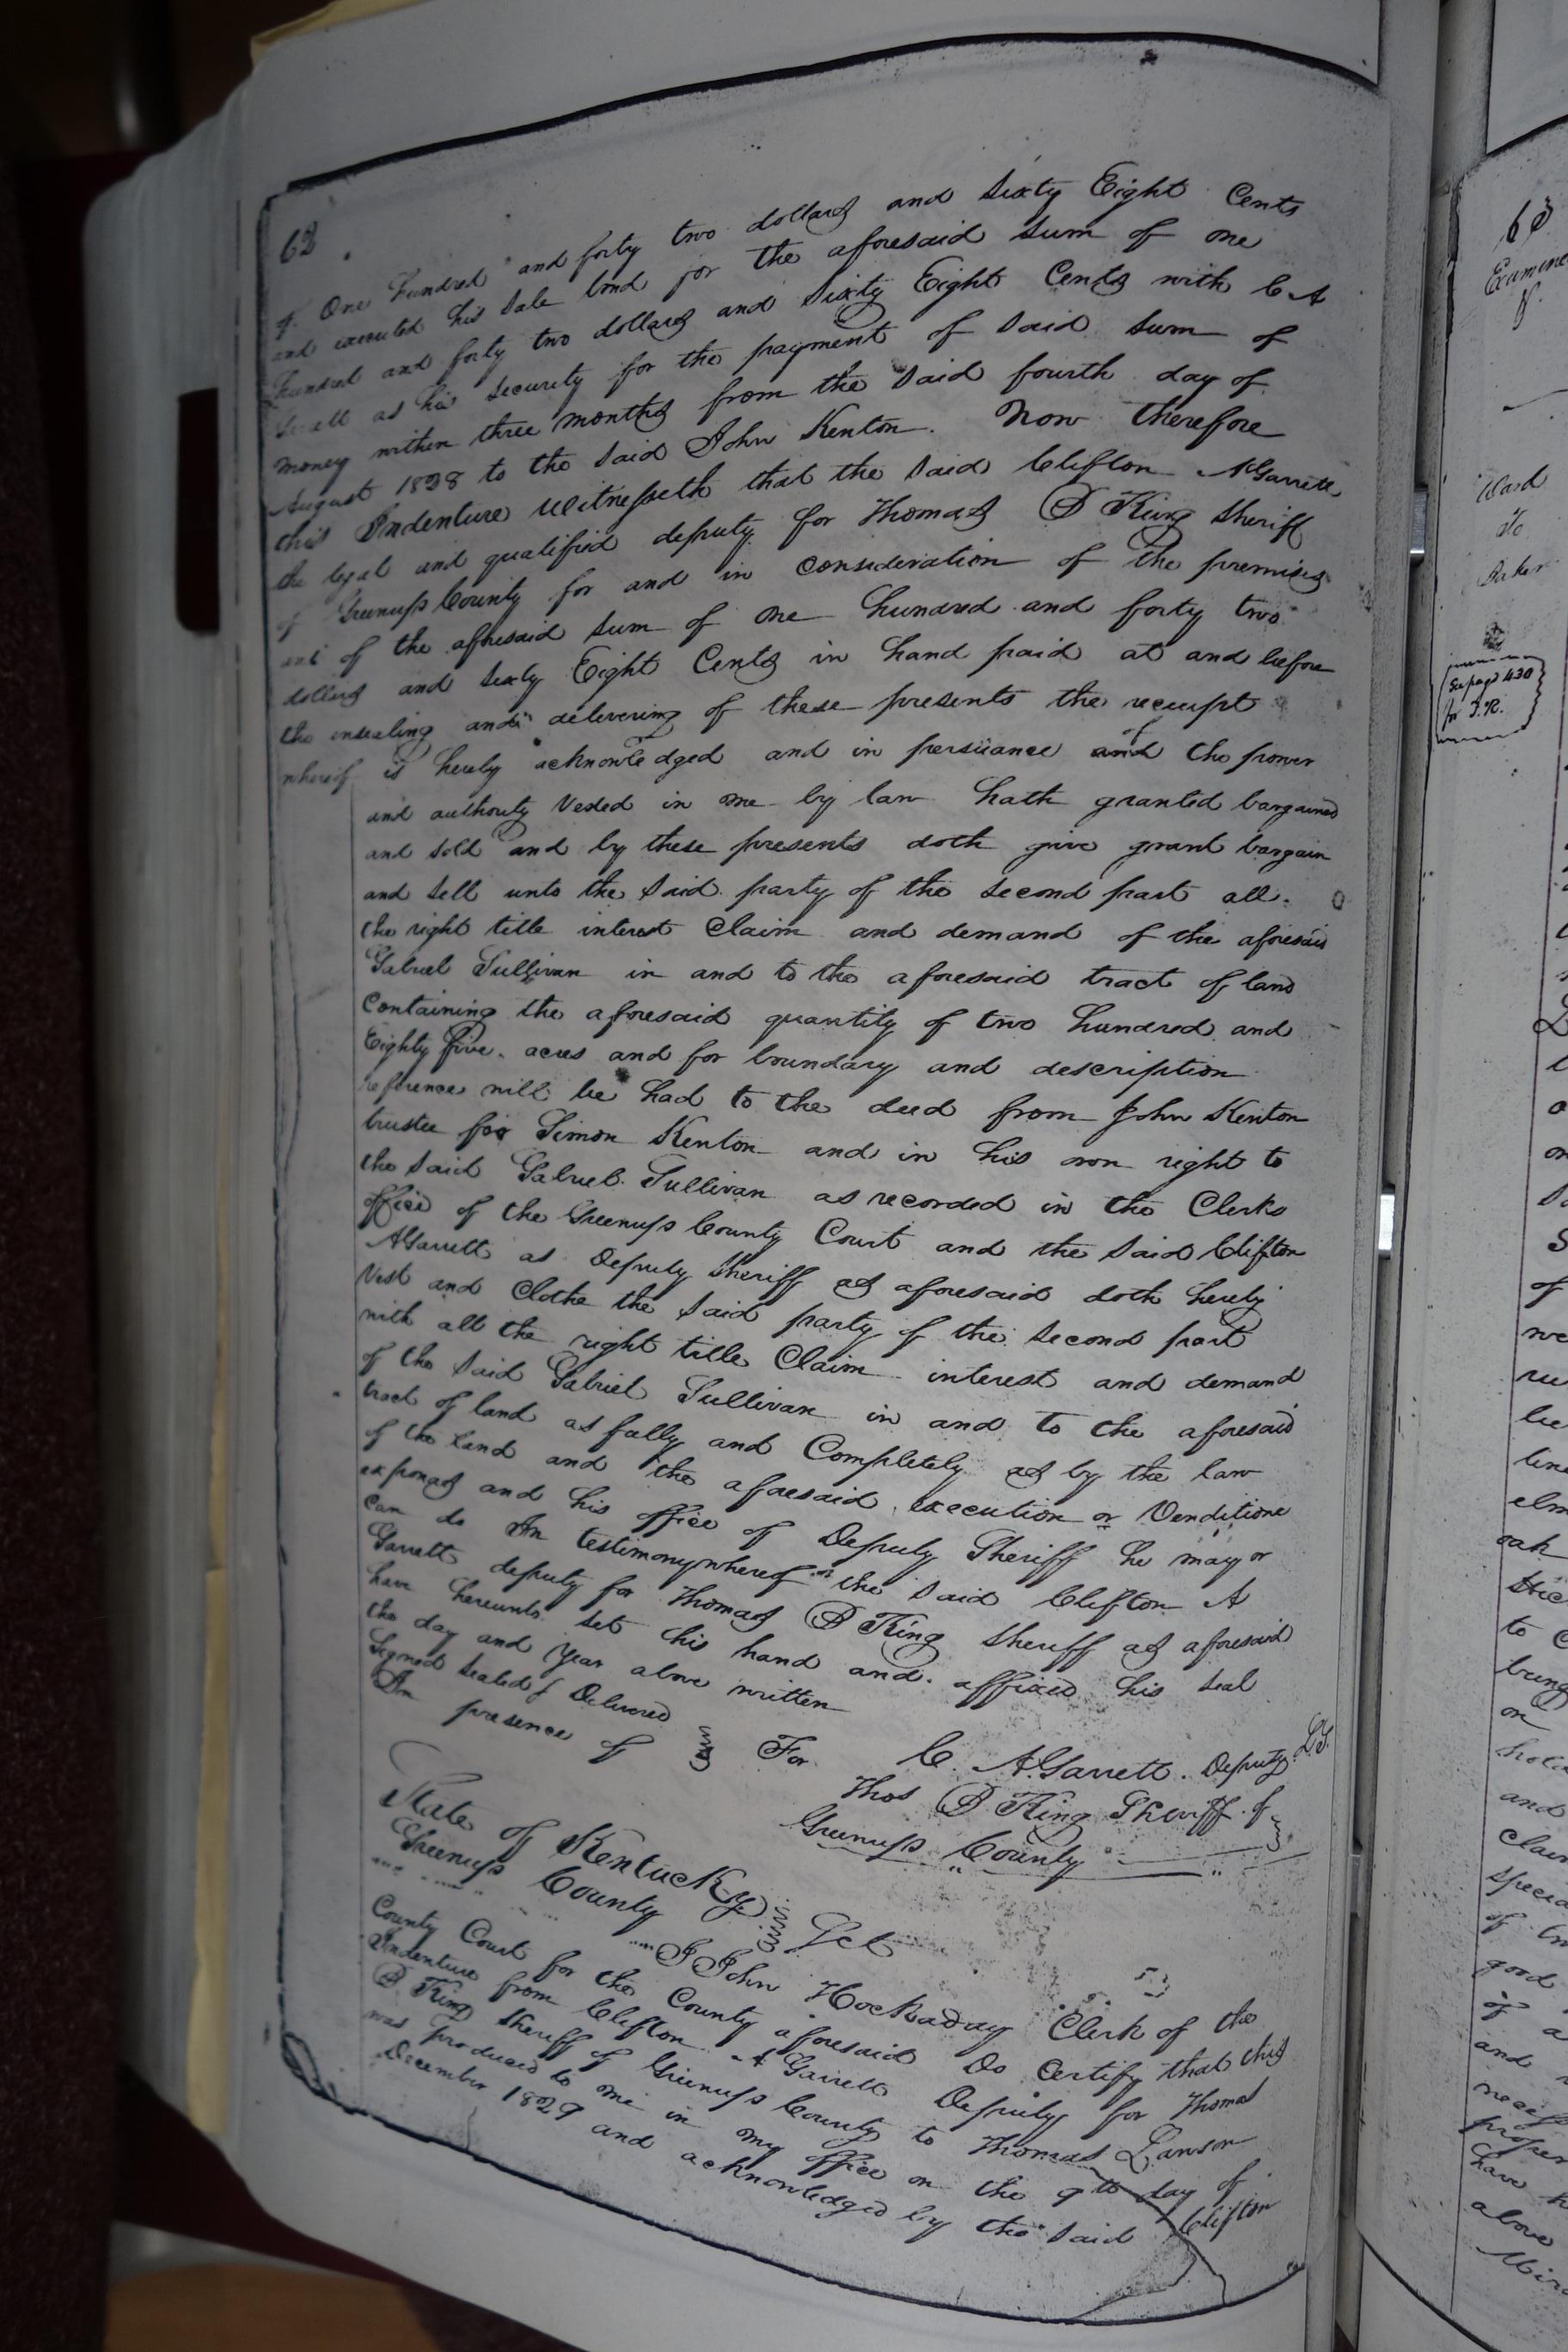 62
of One hundred and forty two dollars and Sixty Eight Cents
and executed his Sale bond for the aforesaid Sum of one
hundred and forty two dollars and Sixty Eight Cents with C A
as his security for the payment of Said Sum of
money within three months from the Said fourth day of
August 1828 to the Said John Kenton. Now therefore
this Indenture Witnesseth that the Said Clifton A Garrett
the legal and qualified deputy for Thomas B King Sheriff
of Greenup County for and in consideration of the premises
and of the aforesaid Sum of one hundred and forty two
dollars and Sixty Eight Cents in hand paid at and before
the insealing and delivering of these presents the receipt
whereof is hereby acknowledged and in persuance and of the power
and authority Vested in me by law hath granted bargained
and Sold and by these presents doth give grant bargain
and Sell unto the Said party of the Second part all
the right title interest Claim and demand of the aforesaid
Gabriel Sullivan in and to the aforesaid tract of land
Containing the aforesaid quantity of two hundred and
Eighty five acres and for boundary and description
reference will be had to the deed from John Kenton
trustee for Simon Kenton and in his own right to
the Said Gabriel Sullivan as recorded in the Clerks
office of the Greenup County Court and the Said Clifton
A Garrett as Deputy Sheriff as aforesaid doth hereby
Vest and Clothe the Said party of the Second part
with all the right title Claim interest and demand
of the Said Gabriel Sullivan in and to the aforesaid
tract of land as fully and Completely as by the law
of the land and the aforesaid execution or Venditione
exponas and his office of Deputy Sheriff he may or
can do In testimony whereof the Said Clifton A
Garrett deputy for Thomas B King Sheriff as aforesaid
have hereunto Set his hand and affixed his Seal
the day and Year above written
Signed Sealed & Delivered
In presence of
For C. A Garrett. Deputy L.S.
Thos B King Sheriff of
Greenup County
State of Kentucky
Greenup County Sct
I John Hockaday Clerk of the
County Court for the County aforesaid Do Certify that this
Indenture from Clifton A Garrett Deputy for Thomas
B. King Sheriff of Greenup County to Thomas Lawson
was produced to me in my office on the 9th day of
December 1829 and acknowledged by the Said Clifton
63
Ward
To
Baker
See page 430
for I.R.